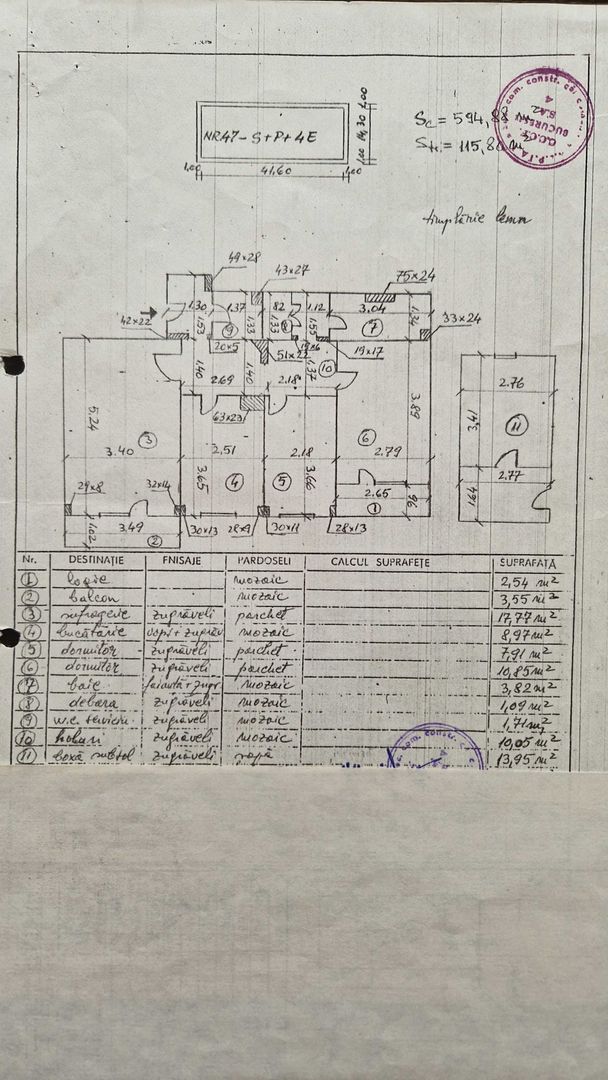 NR.47 - S+P+4E
1,00 14,30 1,00
1,00 41,60 1,00
Sc = 594,88 m²
tîmplărie lemn
49×28
43×27
75×24
33×24
42×22
1.30 1.37 82 1.12 3.04
1.53 1.33 1.33 1.55 1.34
9 8 7
20×5 51×22 19×6 19×17
10
1.40 1.40 1.37
2.69 2.18
63×23
5.24
3
3.40
2.51
3.65
4
5
2.18
3.66
6
2.79
3.89
2.65
96
1
29×8 32×14
1.02
3.49
2
30×13 28×9 30×11 28×13
2.76
3.41
11
2.77
1.64
Nr. DESTINAȚIE FNISAJE PARDOSELI CALCUL SUPRAFEȚE SUPRAFAȚĂ
1 logie mozaic 2,54 m²
2 balcon mozaic 3,55 m²
3 sufragerie zugrăveli parchet 17,77 m²
4 bucătărie vopsi + zugrăv mozaic 8,97 m²
5 dormitor zugrăveli parchet 7,91 m²
6 dormitor zugrăveli parchet 10,85 m²
7 baie faianță + zugr. mozaic 3,82 m²
8 debara zugrăveli mozaic 1,09 m²
9 w.c. serviciu zugrăveli mozaic 1,71 m²
10 holuri zugrăveli mozaic 10,05 m²
11 boxă subsol zugrăveli șapă 13,95 m²